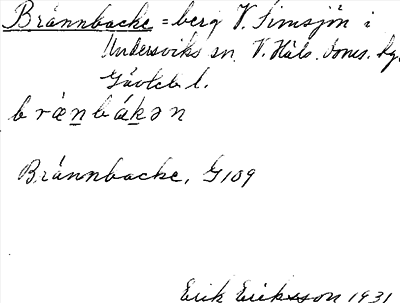 Brännbacke = berg V. Simsjön i
Undersviks sn. V. Häls. doms. hg.
Gävleb l.
bræn bákən
Brännbacke, G109
Erik Eriksson 1931